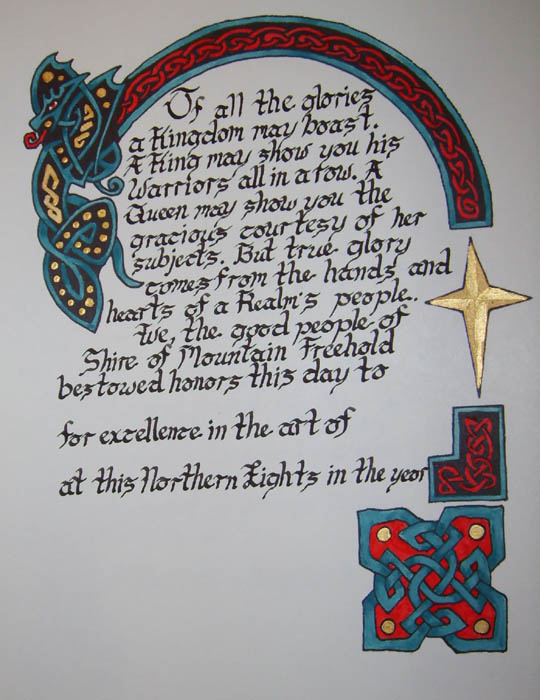 Of all the glories
a Kingdom may boast.
A King may show you his
Warriors all in a row. A
Queen may show you the
gracious courtesy of her
subjects. But true glory
comes from the hands and
hearts of a Realm's people.
We, the good people of
Shire of Mountain Freehold
bestowed honors this day to
for excellence in the art of
at this Northern Lights in the year